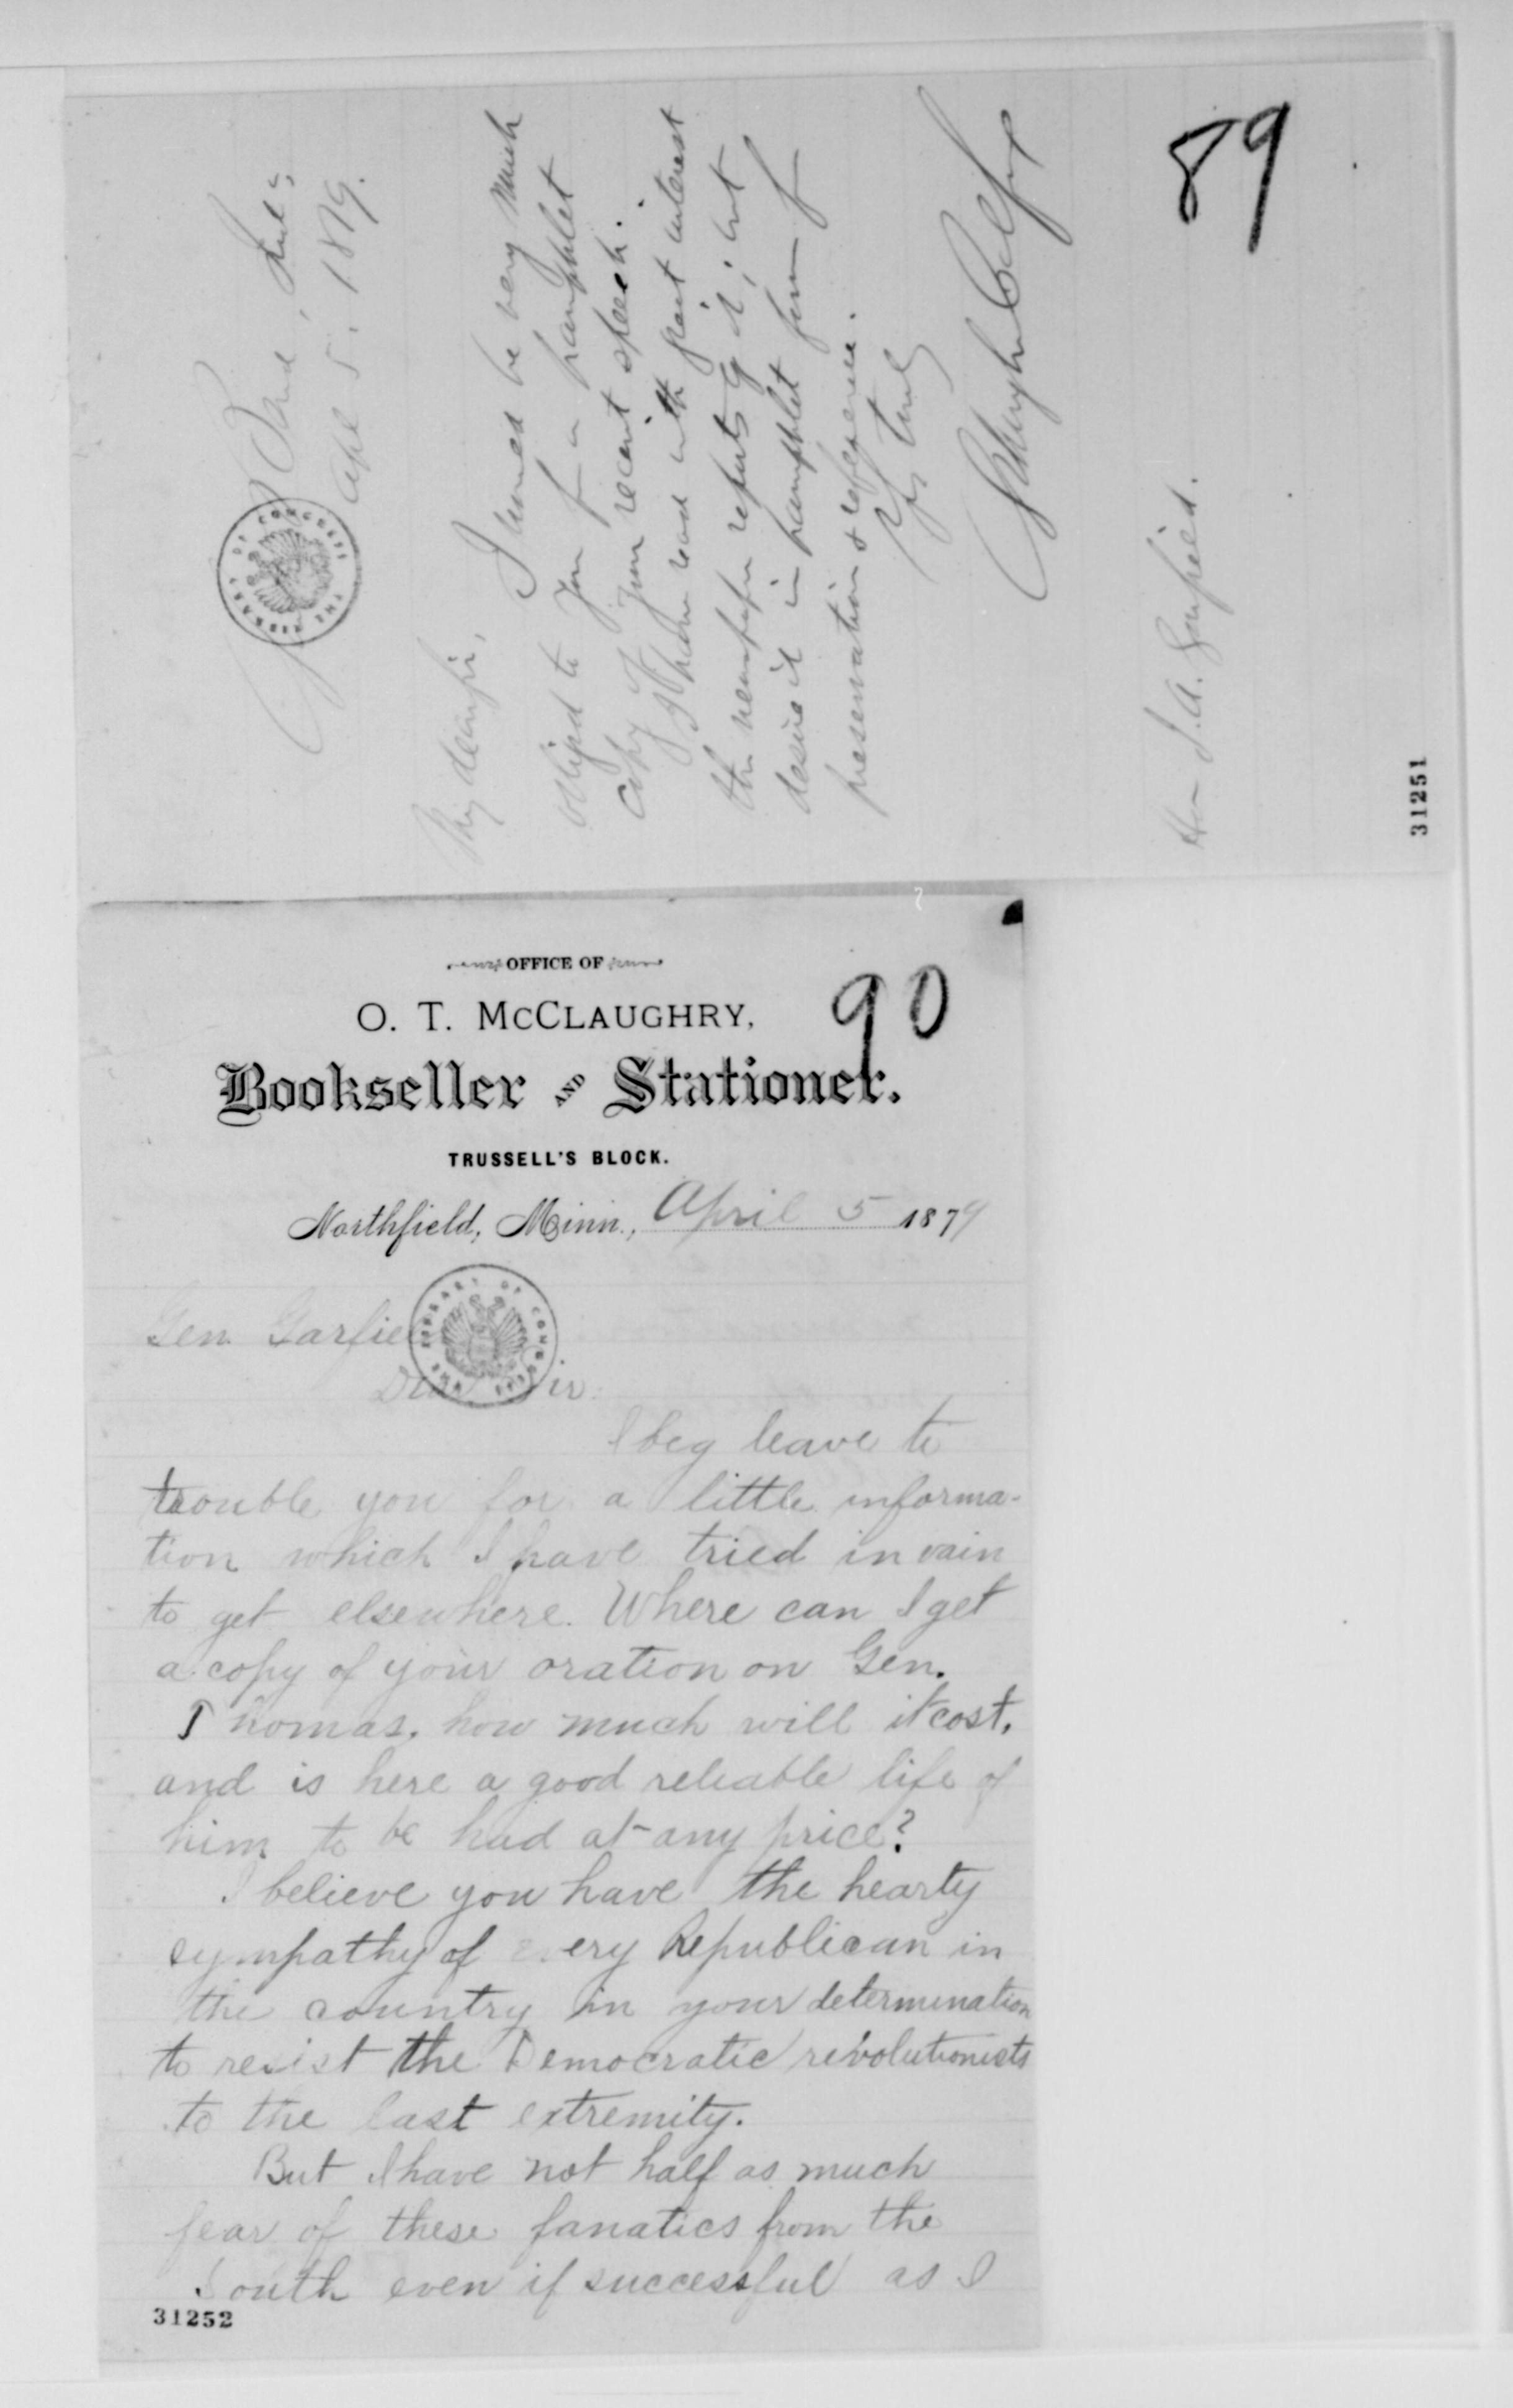 89
Ind.,
Apl 5. 1879.
My dear sir,
I should be very much
obliged to you for a pamphlet
copy of your recent speech.
I have read with great interest
the newspaper reports of it; but
desire it in pamphlet form for
preservation & reference.
Yrs truly
Schuyler Colfax
Hon J. A. Garfield.
31251
OFFICE OF
O. T. McCLAUGHRY,
90
Bookseller AND Stationer.
TRUSSELL'S BLOCK.
Northfield, Minn., April 5 1879
THE LIBRARY OF CONGRESS
Gen. Garfield
Dear Sir:
I beg leave to
trouble you for a little informa-
tion which I have tried in vain
to get elsewhere. Where can I get
a copy of your oration on Gen.
Thomas, how much will it cost,
and is here a good reliable life of
him to be had at any price?
I believe you have the hearty
sympathy of every Republican in
the country in your determination
to resist the Democratic revolutionists
to the last extremity.
But I have not half as much
fear of these fanatics from the
South even if successful as I
31252